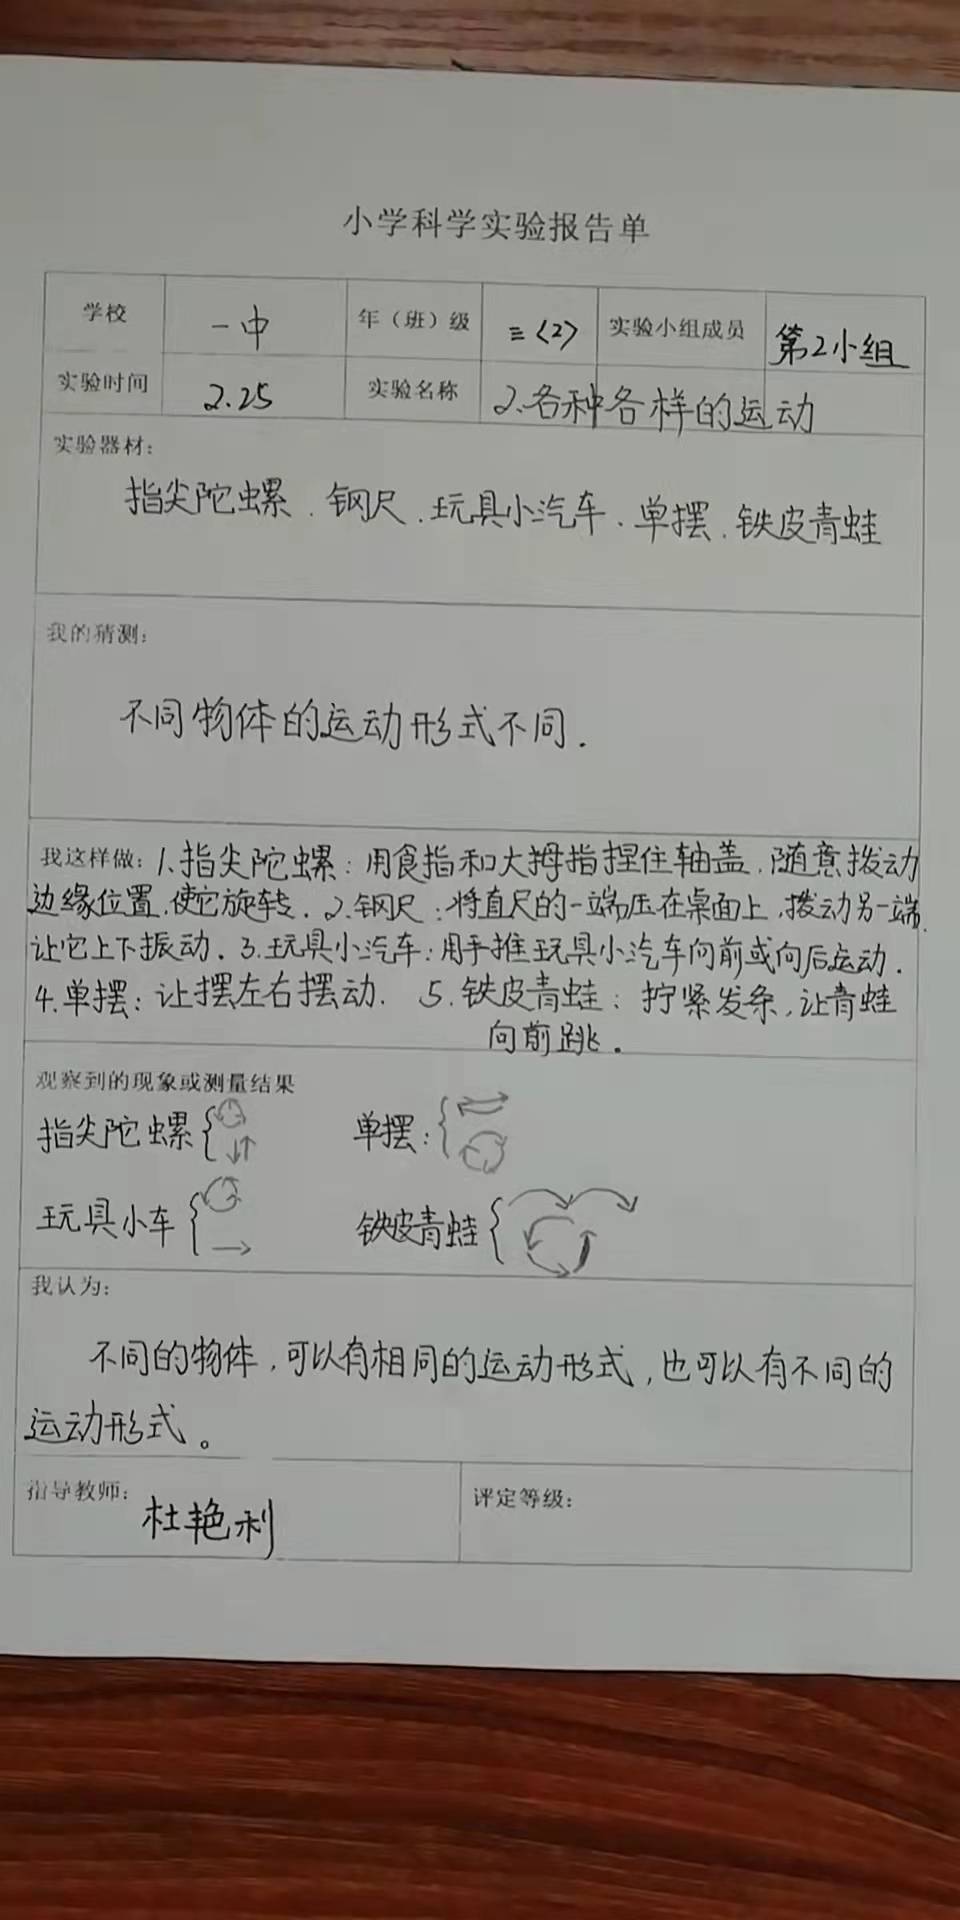 小学科学实验报告单
学校 一中 年（班）级 三〈2〉 实验小组成员 第2小组
实验时间 2.25 实验名称 2.各种各样的运动
实验器材：
指尖陀螺、钢尺、玩具小汽车、单摆、铁皮青蛙
我的猜测：
不同物体的运动形式不同.
我这样做：1.指尖陀螺：用食指和大拇指捏住轴盖,随意拨动
边缘位置,使它旋转. 2.钢尺：将直尺的一端压在桌面上,拨动另一端,
让它上下振动. 3.玩具小汽车：用手推玩具小汽车向前或向后运动.
4.单摆：让摆左右摆动. 5.铁皮青蛙：拧紧发条,让青蛙
向前跳.
观察到的现象或测量结果
指尖陀螺 单摆：
玩具小车 铁皮青蛙
我认为：
不同的物体,可以有相同的运动形式,也可以有不同的
运动形式。
指导教师：杜艳利 评定等级：